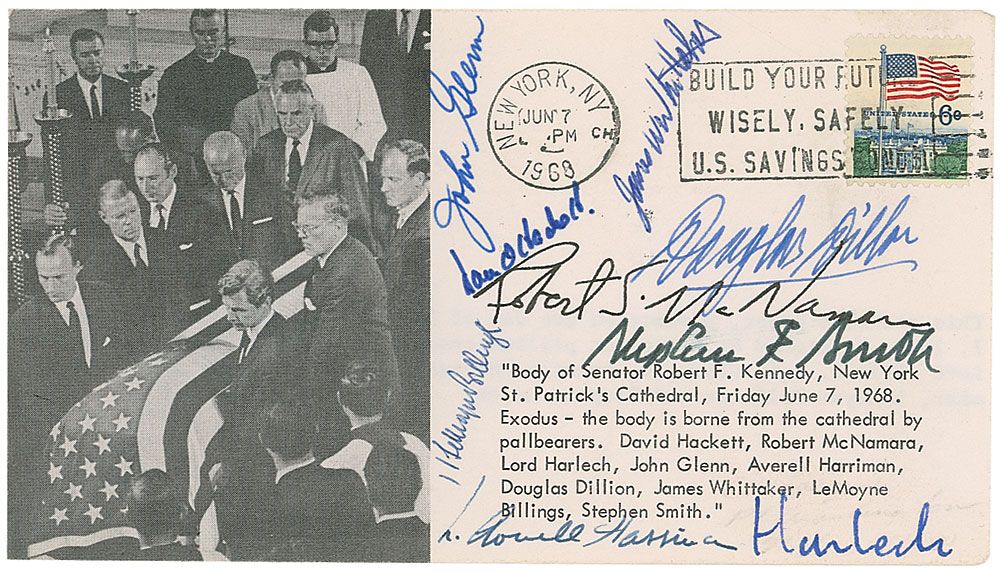 NEW YORK, NY
JUN 7
PM
1968
BUILD YOUR FUT
WISELY, SAFELY
U.S. SAVINGS
UNITED STATES 6c
John Glenn
Douglas Dillon
Robert S. McNamara
Stephen E Smith
"Body of Senator Robert F. Kennedy, New York
St. Patrick's Cathedral, Friday June 7, 1968.
Exodus – the body is borne from the cathedral by
pallbearers. David Hackett, Robert McNamara,
Lord Harlech, John Glenn, Averell Harriman,
Douglas Dillion, James Whittaker, LeMoyne
Billings, Stephen Smith."
Averell Harriman
Harlech